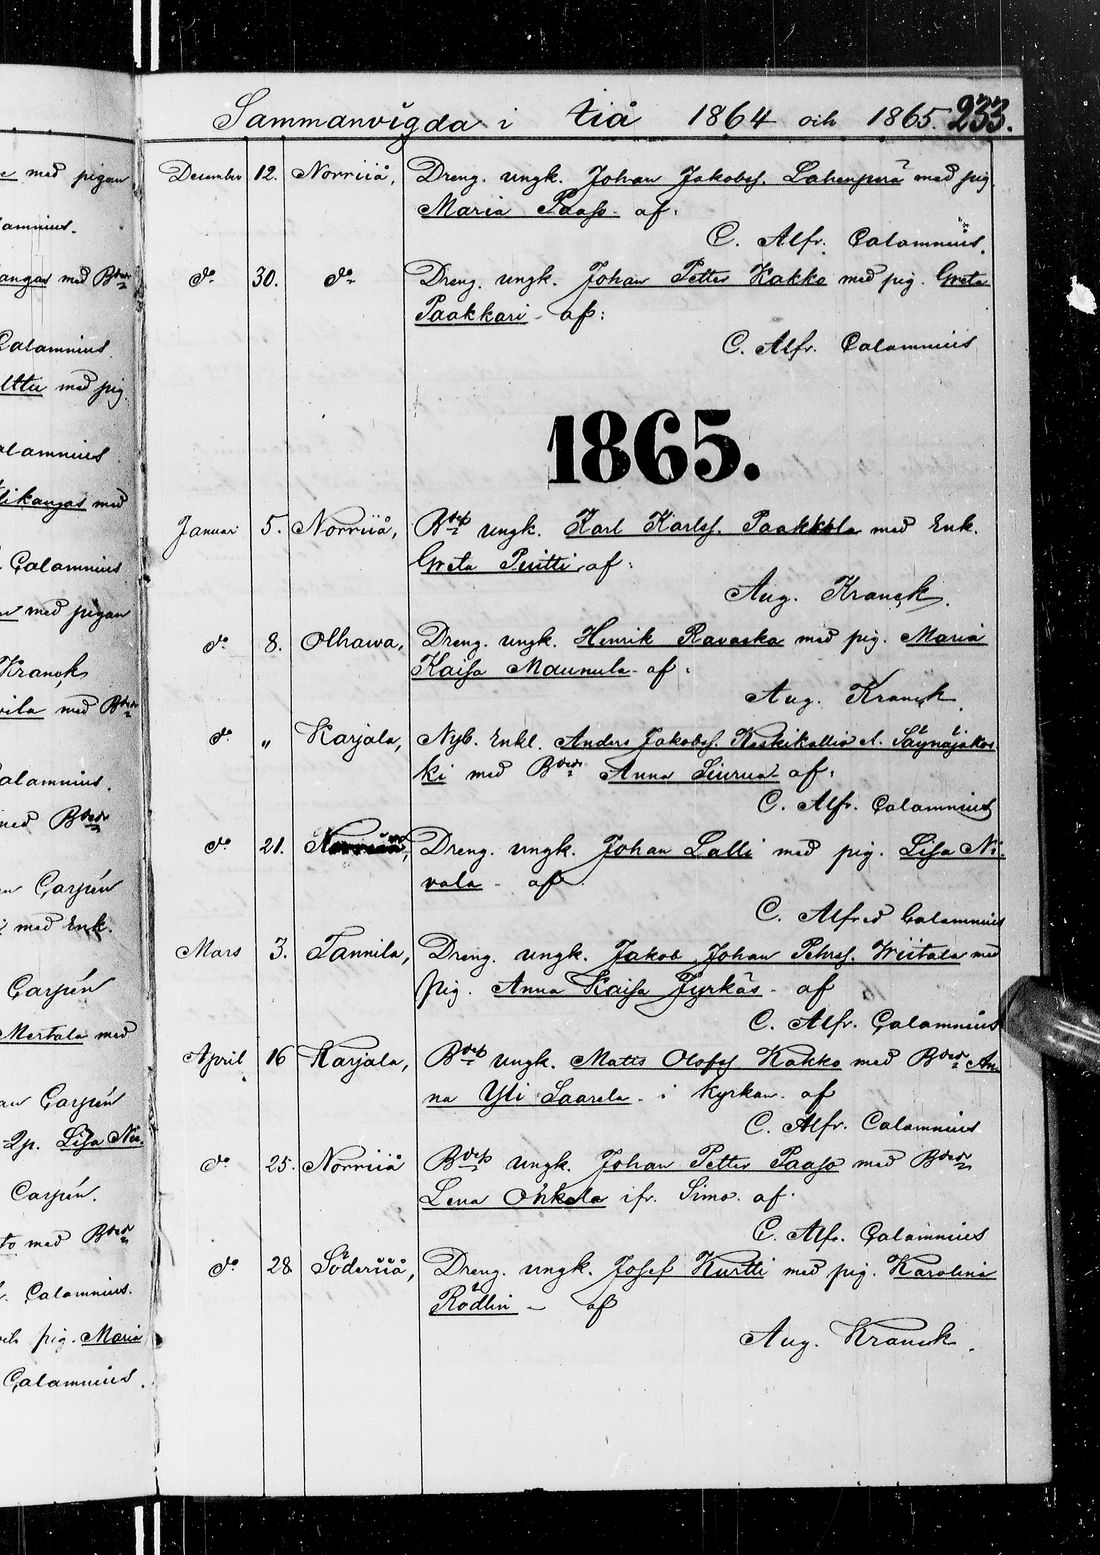 e med pigan
amnius.
angas med Bdr
Calamnius
lttu med pig.
alamnius
tikangas med
Calamnius
med pigan
Kranck
vila med Bdr
alamnius.
med Bdr
Carpén
med Enk.
Carpén
Mertala med
Carpén
Lisa Nii-
Carpén.
to med Bdr
Calamnius.
och pig. Maria
Calamnius.
Sammanvigda i Iiå 1864 och 1865. 233.
December 12. Norriiå, Dreng. ungk. Johan Jakobss. Lahenperä med pig.
Maria Paaso. af:
C. Alfr. Calamnius.
do 30. do Dreng. ungk. Johan Petter Kakko med pig. Greta
Paakkari - af:
C. Alfr. Calamnius
1865.
Januari 5. Norriiå, Bdsn ungk. Karl Karlss. Paakkola med Enk.
Greta Puitti af:
Aug. Kranck.
do 8. Olhawa, Dreng. ungk. Henrik Ravaska med pig. Maria
Kaisa Maunula - af:
Aug. Kranck.
do " Karjala, Nyb. Enkl. Anders Jakobss. Keskikallio l. Säynäjäkos
ki med Bdr Anna Siurua - af:
C. Alfr. Calamnius
do 21. Dreng. ungk. Johan Lalli med pig. Lisa Ni-
vala - af.
C. Alfred Calamnius
Mars 3. Tannila, Dreng. ungk. Jakob Johan Petterss. Wiitala med
pig. Anna Kaisa Jyrkäs - af
C. Alfr. Calamnius
April 16 Karjala, Bdsn ungk. Matts Olofss Kakko med Bdr An-
na Yli Saarela - i kyrkan. af
C. Alfr. Calamnius
do 25. Norriiå Bdsn ungk. Johan Petter Paaso med Bdr
Lena Onkala ifr. Simo. af.
C. Alfr. Calamnius
do 28 Söderiiå, Dreng. ungk. Josef Kurtti med pig. Karolina
Rödlin - af
Aug. Kranck.